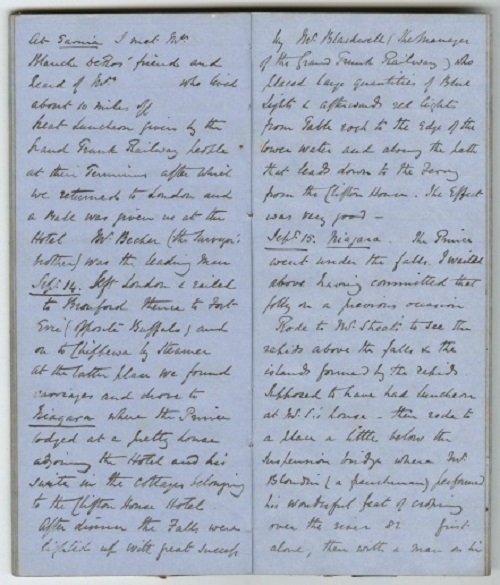 At Sarnia I met Mrs
Blanch friends and
heard of Mrs who lived
about 10 miles off
Great Luncheon given by the
Grand Trunk Railway people
at their Terminus after which
we returned to London and
a Ball was given us at the
Hotel Mr Becher (the Surveyor's
brother) was the leading man
Sept 14. Left London & railed
to thence to Fort
Erie (opposite Buffalo) and
on to Chippewa by Steamer
at the latter place we found
carriages and drove to
Niagara where the Prince
lodged at a pretty house
adjoining the Hotel and his
suite in the cottages belonging
to the Clifton House Hotel.
After dinner the Falls were
lighted up with great success
by Mr Blackwell (the Manager
of the Grand Trunk Railway) who
placed large quantities of Blue
lights & afterwards red lights
from Table rock to the Edge of the
lower water and along the path
that leads down to the Ferry
from the Clifton House. The Effect
was very good —
Sept 15. Niagara. The Prince
went under the falls. I waited
above having committed that
folly on a previous occasion
Rode to Mr Street's to see the
rapids above the falls & the
islands formed by the rapids.
Supposed to have had luncheon
at Mr S's house — then rode to
a place a little below the
Suspension bridge where Mr
Blondin (a frenchman) performed
his wonderful feat of crossing
over the river &c first
alone, then with a man on his